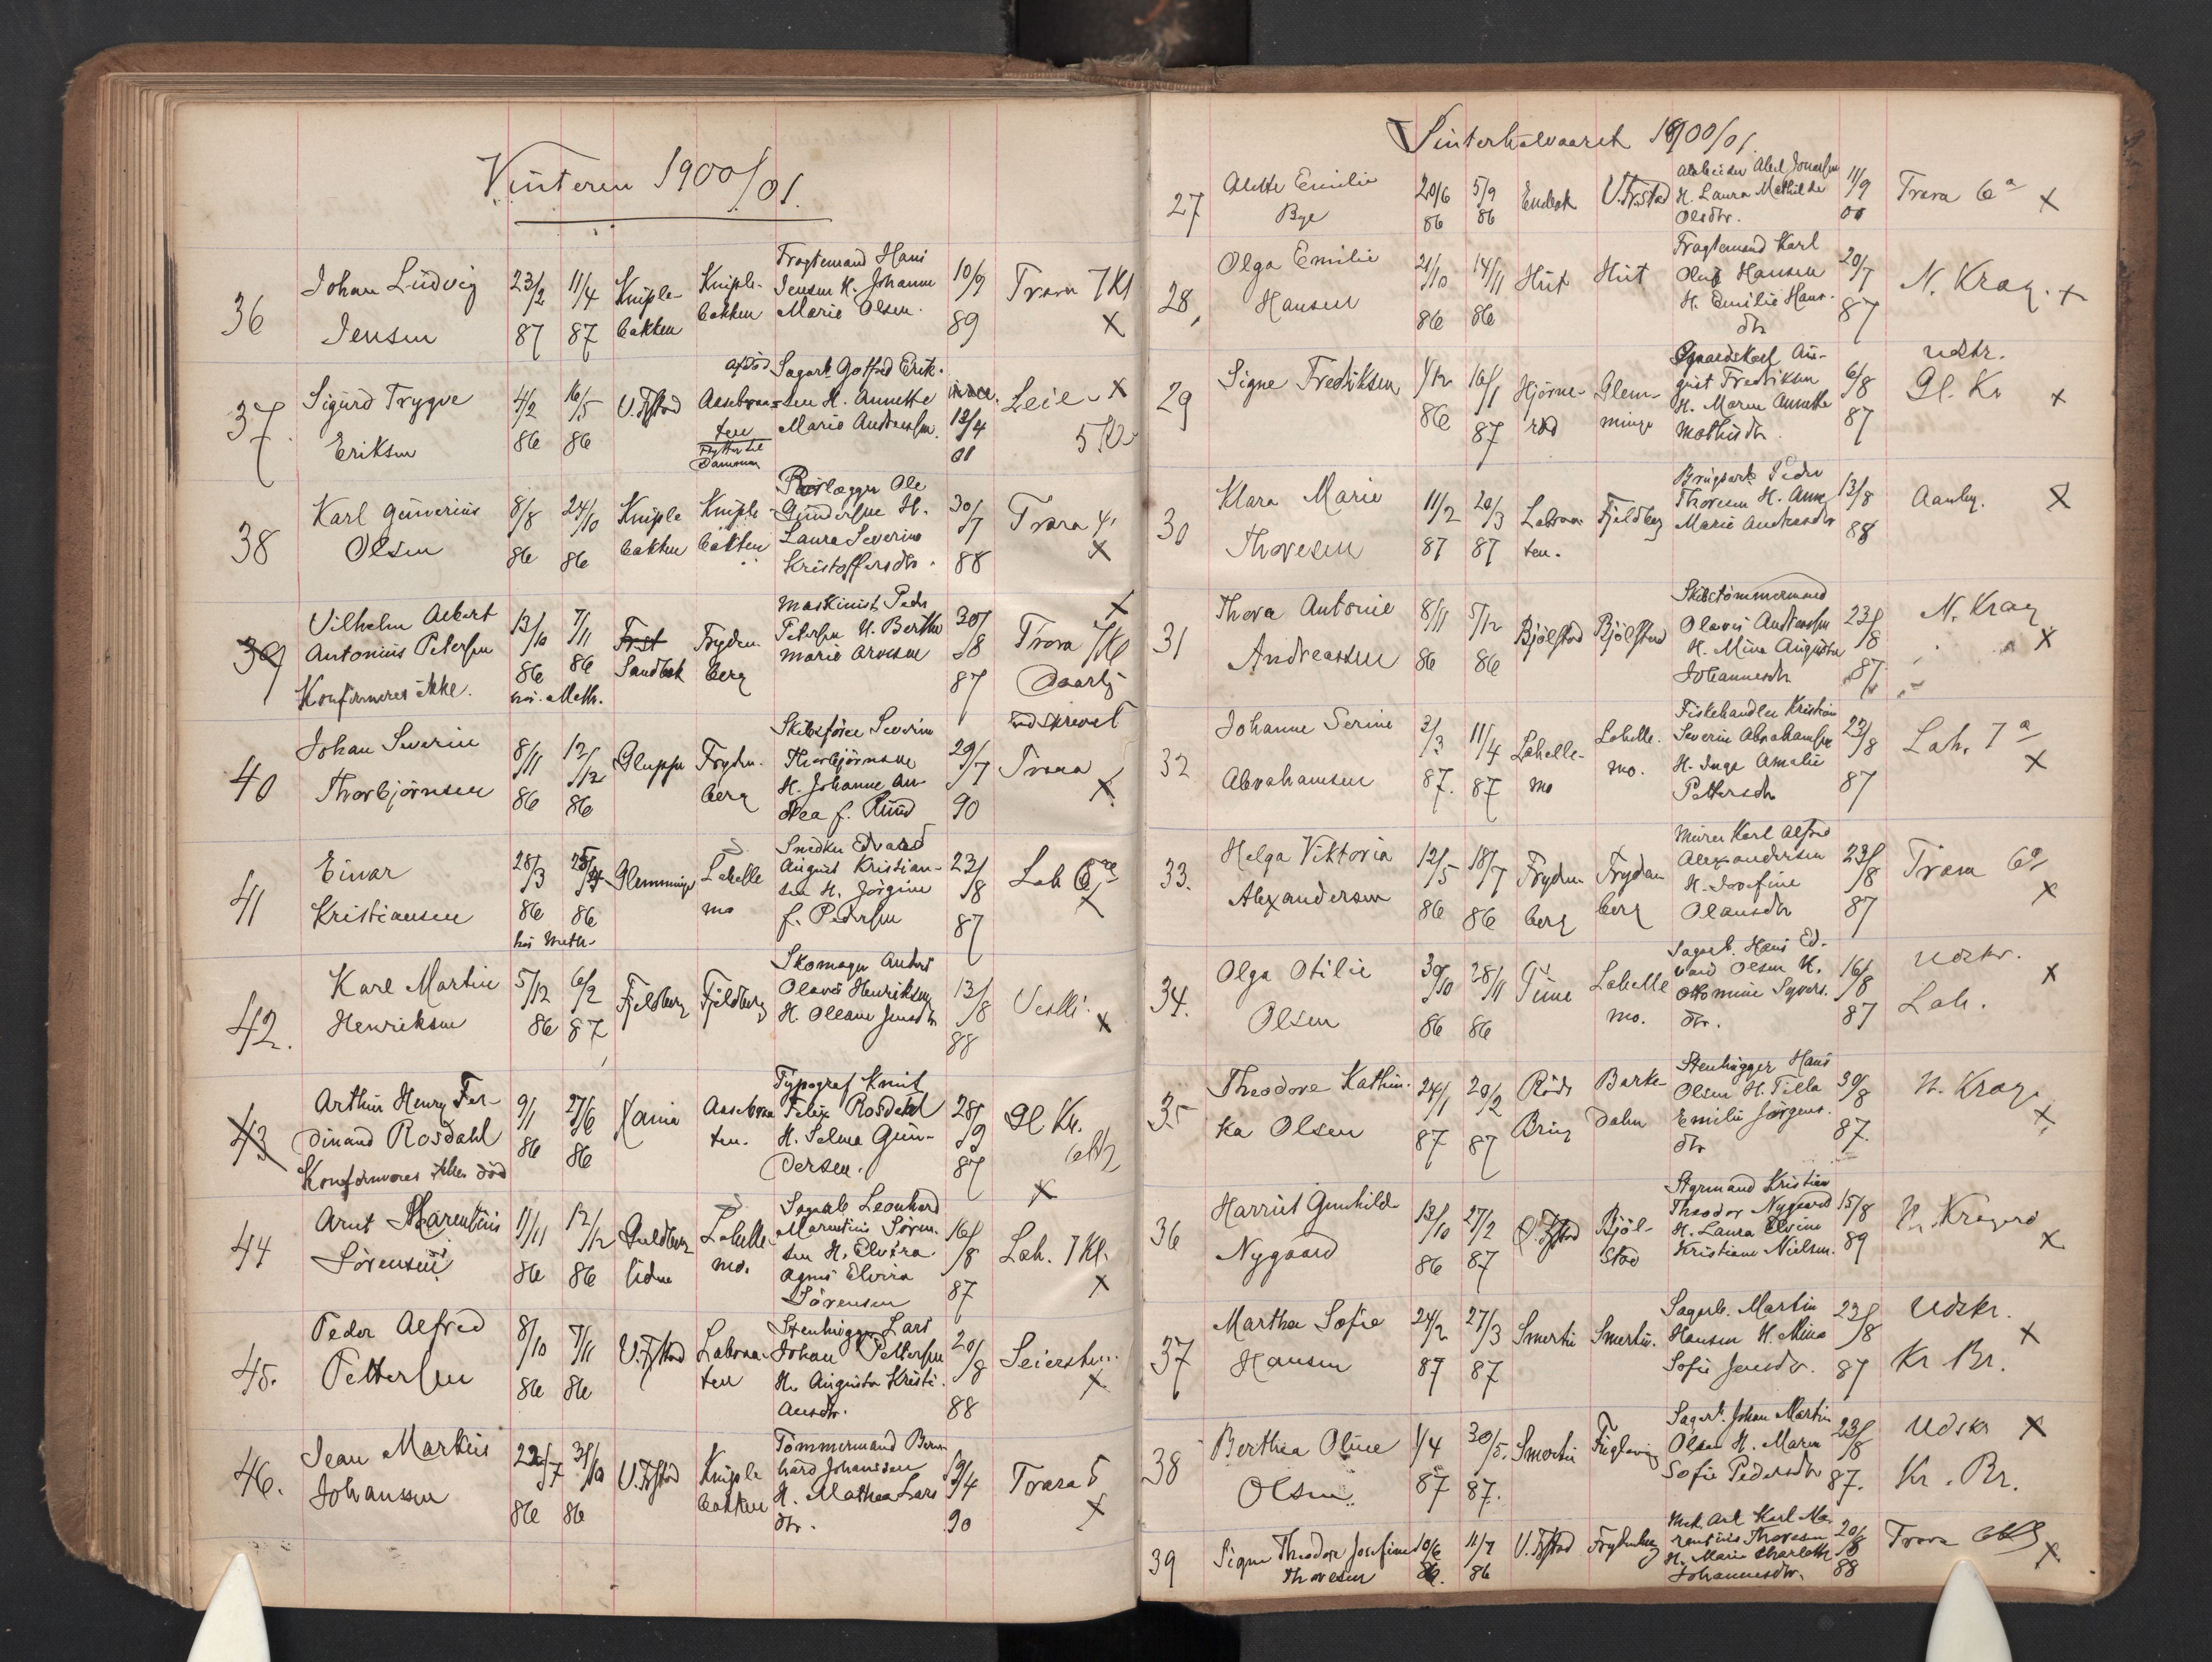 Vinteren 1900/01.
36 Johan Ludvig Jensen 23/2 87 11/4 87 Kniplebakken Kniplebakken Fragtemand Hans Jensen H. Johanne Marie Olsen. 10/9 89 Trara 7 Kl X
37. Sigurd Trygve Eriksen 4/2 86 16/5 86 V. Fstad Aasebraaten Flyttet til Dammen Sagarb Gotfred Eriksen H. Annette Marie Andreassen. 13/4 01 Leie X
38 Karl Gunerius Olsen 8/8 86 24/10 86 Kniplebakken Kniplebakken Rørlægger Ole Gundersen H. Laura Severine Kristoffersdtr. 30/7 88 Trara X
39 Vilhelm Albert Antonius Petersen 13/10 86 7/11 86 Sandbæk Frydenberg Maskinist Peder Petersen H. Berthe Marie 30/8 87 Trara 7 Kl X
Konfirmeres ikke. hos. Meth.
40 Johan Severin Thorbjørnsen 8/11 86 12/12 86 Gluppe Frydenberg Skibsfører Severin Thorbjørnsen H. Johanne Andrea f. Ruud 29/7 90 udskrevet Trara X
41 Einar Kristiansen 28/3 86 86 Glemminge Lahellemo Snedker Edvard August Kristiansen H. Jørgine f. Pedersen 23/8 87 Lah X
hos Meth.
42. Karl Martin Henriksen 5/12 86 6/2 87 Fjeldberg Fjeldberg Skomager Anders Olavs Henriksen H. Oleane Jensdtr 13/8 88 X
43 Arthur Henry Ferdinand Rosdahl 9/1 86 27/6 86 Xania Aasebraaten. Typograf Knut Felix Rosdahl H. Selma Gundersen. 28/9 87 Gl Kr. X
Konfirmeres ikke død
44 Arnt Marentius Sørensen 11/11 86 12/12 86 Guldberglidne Lahellemo. Sagarb Leonhard Marentius Sørensen H. Elvira Agnes Elvira Sørensen 16/8 87 Lah. 7 Kl. X
45. Peder Alfred Pettersen 8/10 86 7/11 86 V. Fstad Labraaten Stenhugger Lars Johan Pettersen H. Augusta Kristiansdtr. 20/8 88 Seiersten. X
46. Jean Markus Johanssen 86 31/10 86 V. Fstad Kniplebakken Tømmermand Bernhard Johanssen H. Mathea Larsdtr. 19/4 90 Trara 5 X
Vinterhalvaaret 1900/01.
27 Alette Emilie Bye 20/6 86 5/9 86 Enebek V. Frstad Arbeider Abel Jonassen H. Laura Mathilde Olsdtr. 11/9 00 Trara 6a X
28, Olga Emilie Hansen 21/10 86 14/11 86 Hut Hut Fragtemand Karl Oluf Hansen H. Emilie Hansdtr 20/7 87 N. Krag. X
29 Signe Fredriksen 1/12 86 16/1 87 Hjørnerød Glemminge Gaardskarl August Fredriksen H. Maren Annette Mathisdtr. 6/8 87 udskr. Gl. Kr X
30 Klara Marie Thoresen 11/2 87 20/3 87 Labraaten. Fjeldberg Brugsarb Peder Thoresen H. Anne Marie Andreasdtr 13/8 88 X
31 Thora Antonie Andreassen 8/11 86 5/12 86 Bjølstad Bjølstad Skibstømmermand Olaves Andreassen H. Mina Augusta Johannesdtr 23/8 87 N. Krag X
32 Johanne Serine Abrahamsen 3/3 87. 11/4 87 Lahellemo Lahellemo. Fiskehandler Kristian Severin Abrahamsen H. Inga Amalie Pettersdtr 23/8 87 Lah. 7a X
33. Helga Viktoria Alexandersen 12/5 86 18/7 86 Frydenberg Frydenberg Murer Karl Alfred Alexandersen H. Josefine Olausdtr 23/8 87 Trara 6a X
34. Olga Otilie Olsen 30/10 86 28/11 86 Tune Lahellemo. Sagarb. Hans Edvard Olsen H. Ottomine Syversdtr. 16/8 87 Udskr. Lah. X
35 Theodore Kathinka Olsen 24/1 87 20/2 87 Røds Brug Barkedalen Stenhugger Hans Olsen H. Tilla Emilie Jørgensdtr 30/8 87. N. Krag. X
36 Harriet Gunhilda Nygaard 13/10 86 27/2 87 Ø. Fstad Bjølstad Styrmand Kristian Theodor Nygaard H. Laura Elvine Kristiane Nielsen. 15/8 89 N. Kragerø X
37 Martha Sofie Hansen 24/2 87 27/3 87 Smertu Smertu. Sagarb. Martin Hansen H. Mina Sofie Jensdtr. 23/8 87 Udskr. Kr. Br. X
38 Berthea Oline Olsen. 1/4 87 30/5. 87. Smertu Fuglevig Sagarb. Johan Martin Olsen H. Maren Sofie Pedersdtr 23/8 87. Udskr X Kr. Br.
39 Signe Theodora Josefine Thoresen 10/6 86. 11/7 86 V. Fstad Frydenberg Mek. Arb Karl Marentius Thoresen H. Marie Charlotte Johannesdtr. 20/8 88 Trara X